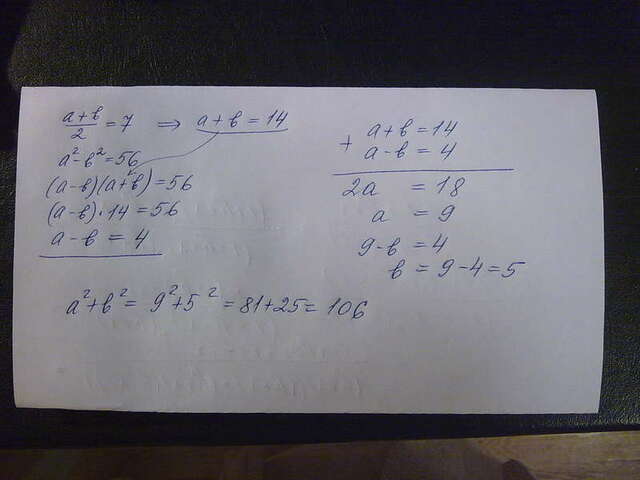 (a+b)/2 = 7 ⇒ a+b = 14
a²-b² = 56
(a-b)(a+b) = 56
(a-b)·14 = 56
a-b = 4
+ a+b = 14
a-b = 4
2a = 18
a = 9
9-b = 4
b = 9-4 = 5
a²+b² = 9²+5² = 81+25 = 106